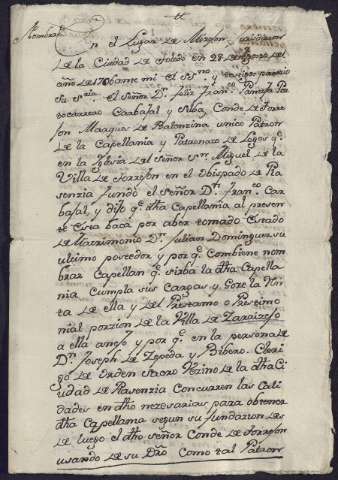 Nombram.to
En el Lugar de Moxxon, 
de la Ciudad de Toledo en 28 de Agosto del
año de 1706 ante mi el ss.no y testigos parezio
su s.ria el Señor D.n Felix Fran.co Pantoja
Portocarrero Carbajal y Silba, Conde de Torre
Jon Marques de Balonzina unico Patron
de la Capellania y Patronato de Legos q.e
en la Iglesia del Señor s.n Miguel de la
Villa de Torrejon en el Obispado de Pla
senzia fundò el Señor D.n Fran.co Car
bajal, y dijo q.e dha Capellania al presen
te esta baca por aber tomado Estado
de Matrimonio D.n Julian Dominguez su
ultimo poseedor y por q.e combiene nom
brar Capellan q.e sirba la dha Capella
nia cumpla sus cargas y Goze la Rin
ta de ella y del Prestamo o Prestimo
nial porzion de la Villa de Zaraizejo
a ella anejo y por q.e en la persona de
D.n Joseph de Zepeda y Ribero Cleri
go de Orden Sacro Vezino de la dha Ciu
dad de Plasenzia Concurren las Cali
dades en dho nezesarias para obtener
dha Capellania segun su fundazion des
de luego el dho señor Conde de Torrejon
usando de su Dro Como tal Patron